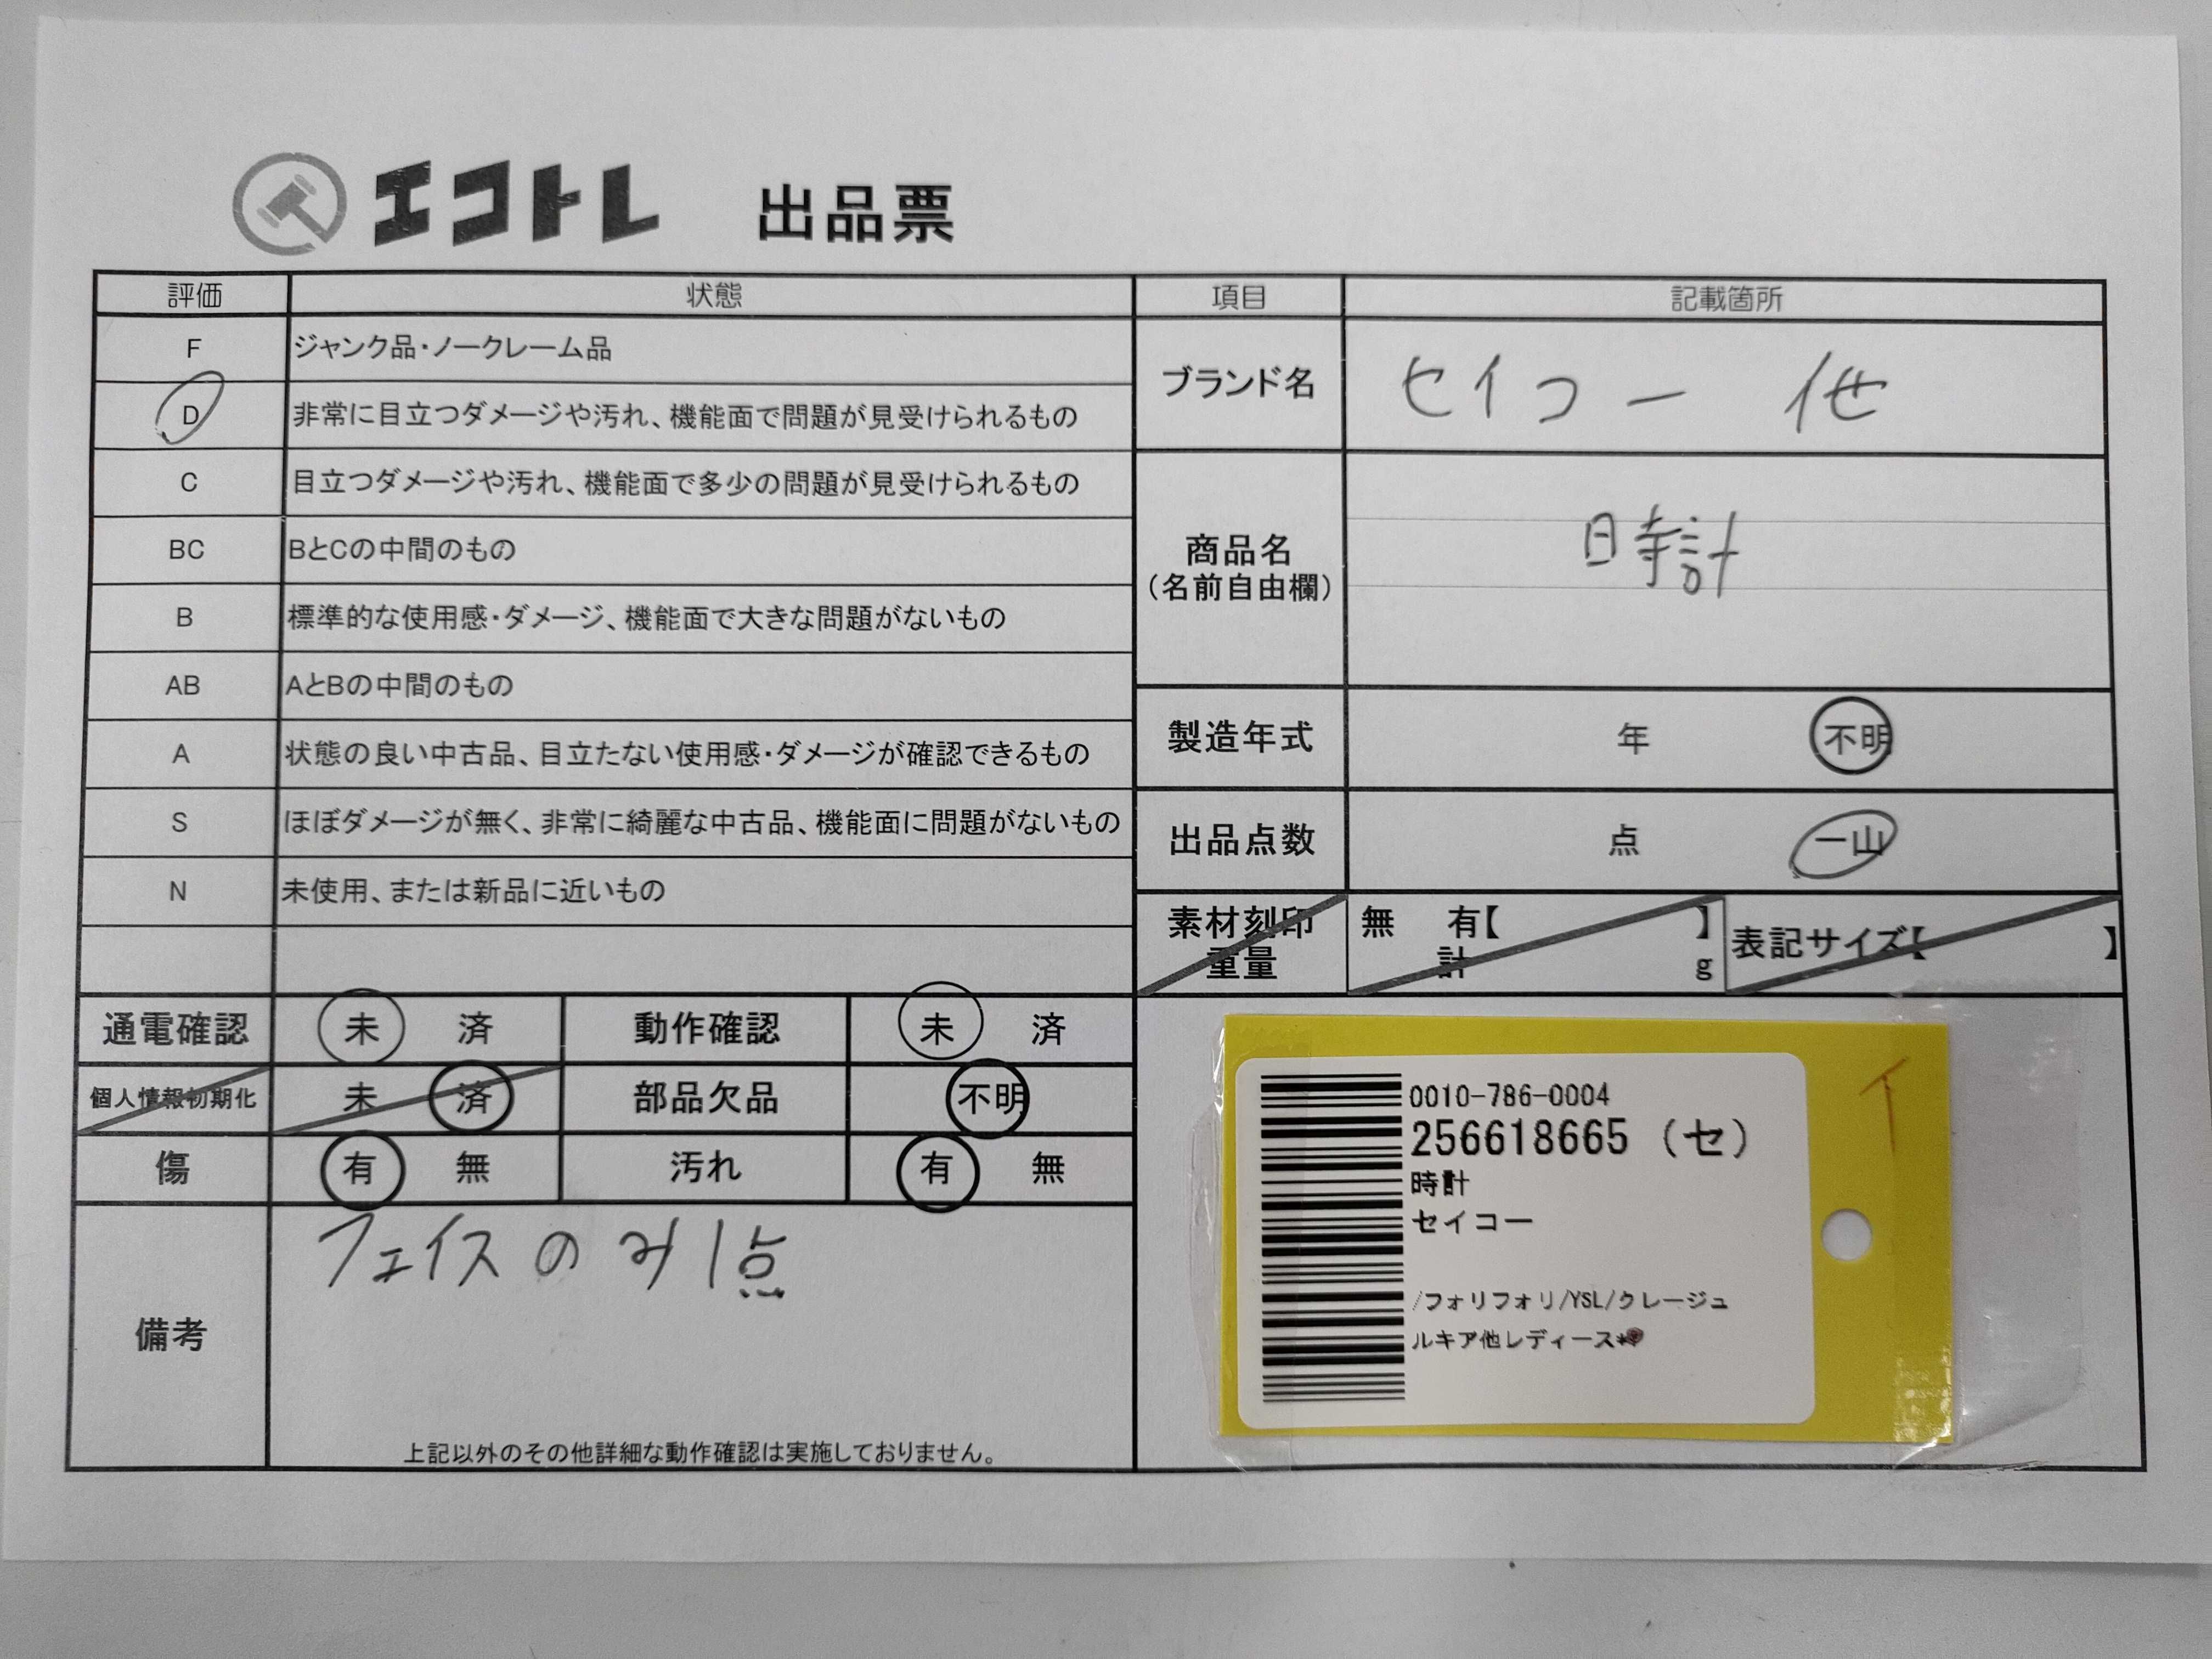 エコトレ 出品票
評価 状態 項目 記載箇所
F ジャンク品・ノークレーム品
D 非常に目立つダメージや汚れ、機能面で問題が見受けられるもの
C 目立つダメージや汚れ、機能面で多少の問題が見受けられるもの
BC BとCの中間のもの
B 標準的な使用感・ダメージ、機能面で大きな問題がないもの
AB AとBの中間のもの
A 状態の良い中古品、目立たない使用感・ダメージが確認できるもの
S ほぼダメージが無く、非常に綺麗な中古品、機能面に問題がないもの
N 未使用、または新品に近いもの
ブランド名 セイコー 他
商品名 時計
(名前自由欄)
製造年式 年 不明
出品点数 点 一山
素材刻印 無 有【 】 表記サイズ【 】
重量 計 g
通電確認 未 済 動作確認 未 済
個人情報初期化 未 済 部品欠品 不明
傷 有 無 汚れ 有 無
備考 フェイスのみ1点
上記以外のその他詳細な動作確認は実施しておりません。
0010-786-0004
256618665 (セ)
時計
セイコー
/フォリフォリ/YSL/クレージュ
ルキア他レディース*